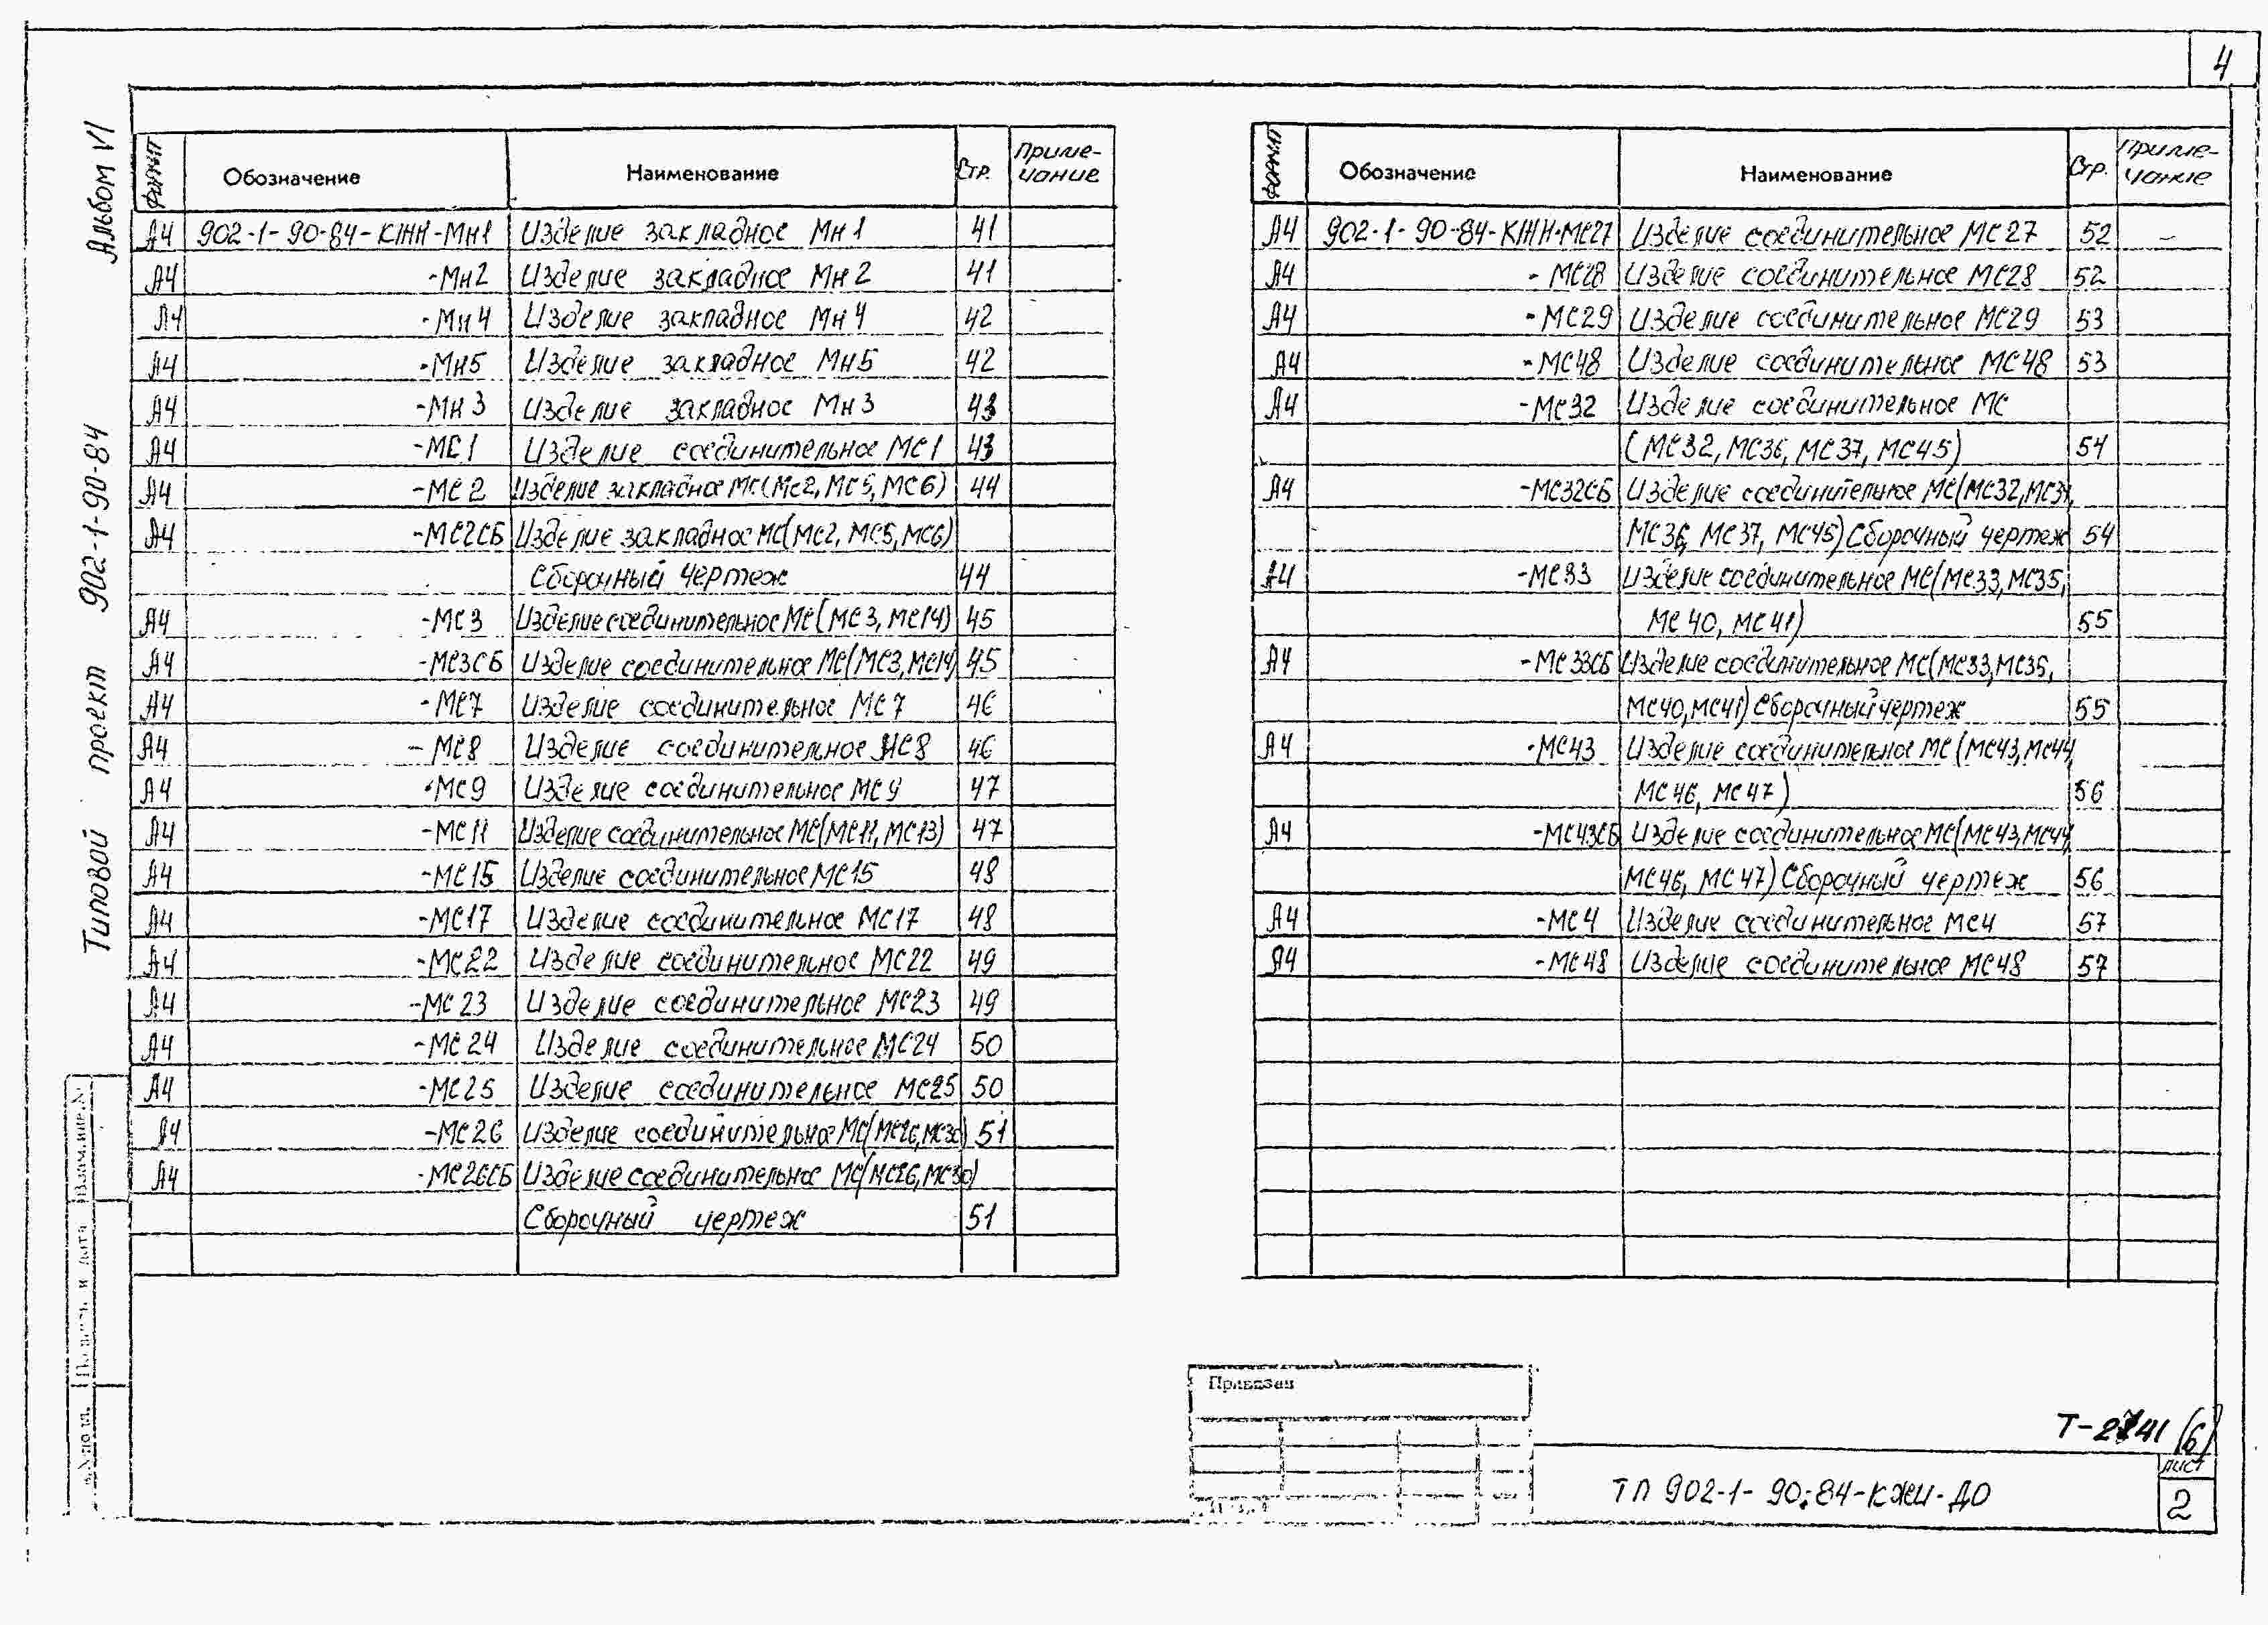 4
Альбом VI
Типовой проект 902-1-90-84
Формат Обозначение Наименование Стр. Приме-
чание
А4 902-1-90-84-КЖИ-Мн1 Изделие закладное Мн1 41
А4 -Мн2 Изделие закладное Мн2 41
А4 -Мн4 Изделие закладное Мн4 42
А4 -Мн5 Изделие закладное Мн5 42
А4 -Мн3 Изделие закладное Мн3 43
А4 -МС1 Изделие соединительное МС1 43
А4 -МС2 Изделие закладное МС(МС2, МС5, МС6) 44
А4 -МС2СБ Изделие закладное МС(МС2, МС5, МС6)
Сборочный чертеж 44
А4 -МС3 Изделие соединительное МС(МС3, МС14) 45
А4 -МС3СБ Изделие соединительное МС(МС3, МС14) 45
А4 -МС7 Изделие соединительное МС7 46
А4 -МС8 Изделие соединительное МС8 46
А4 -МС9 Изделие соединительное МС9 47
А4 -МС11 Изделие соединительное МС(МС11, МС13) 47
А4 -МС15 Изделие соединительное МС15 48
А4 -МС17 Изделие соединительное МС17 48
А4 -МС22 Изделие соединительное МС22 49
А4 -МС23 Изделие соединительное МС23 49
А4 -МС24 Изделие соединительное МС24 50
А4 -МС25 Изделие соединительное МС25 50
А4 -МС26 Изделие соединительное МС(МС26, МС30) 51
А4 -МС26СБ Изделие соединительное МС(МС26, МС30)
Сборочный чертеж 51
Формат Обозначение Наименование Стр. Приме-
чание
А4 902-1-90-84-КЖИ-МС27 Изделие соединительное МС27 52
А4 -МС28 Изделие соединительное МС28 52
А4 -МС29 Изделие соединительное МС29 53
А4 -МС48 Изделие соединительное МС48 53
А4 -МС32 Изделие соединительное МС
(МС32, МС36, МС37, МС45) 54
А4 -МС32СБ Изделие соединительное МС(МС32,
МС36, МС37, МС45) Сборочный чертеж 54
А4 -МС33 Изделие соединительное МС(МС33, МС35,
МС40, МС41) 55
А4 -МС33СБ Изделие соединительное МС(МС33, МС35,
МС40, МС41) Сборочный чертеж 55
А4 -МС43 Изделие соединительное МС(МС43, МС44,
МС46, МС47) 56
А4 -МС43СБ Изделие соединительное МС(МС43, МС44,
МС46, МС47) Сборочный чертеж 56
А4 -МС4 Изделие соединительное МС4 57
А4 -МС48 Изделие соединительное МС48 57
Взам.инв.№
Подпись и дата
Привязан
Т-2741 (6)
ТП 902-1-90-84-КЖИ-ДО
Лист
2